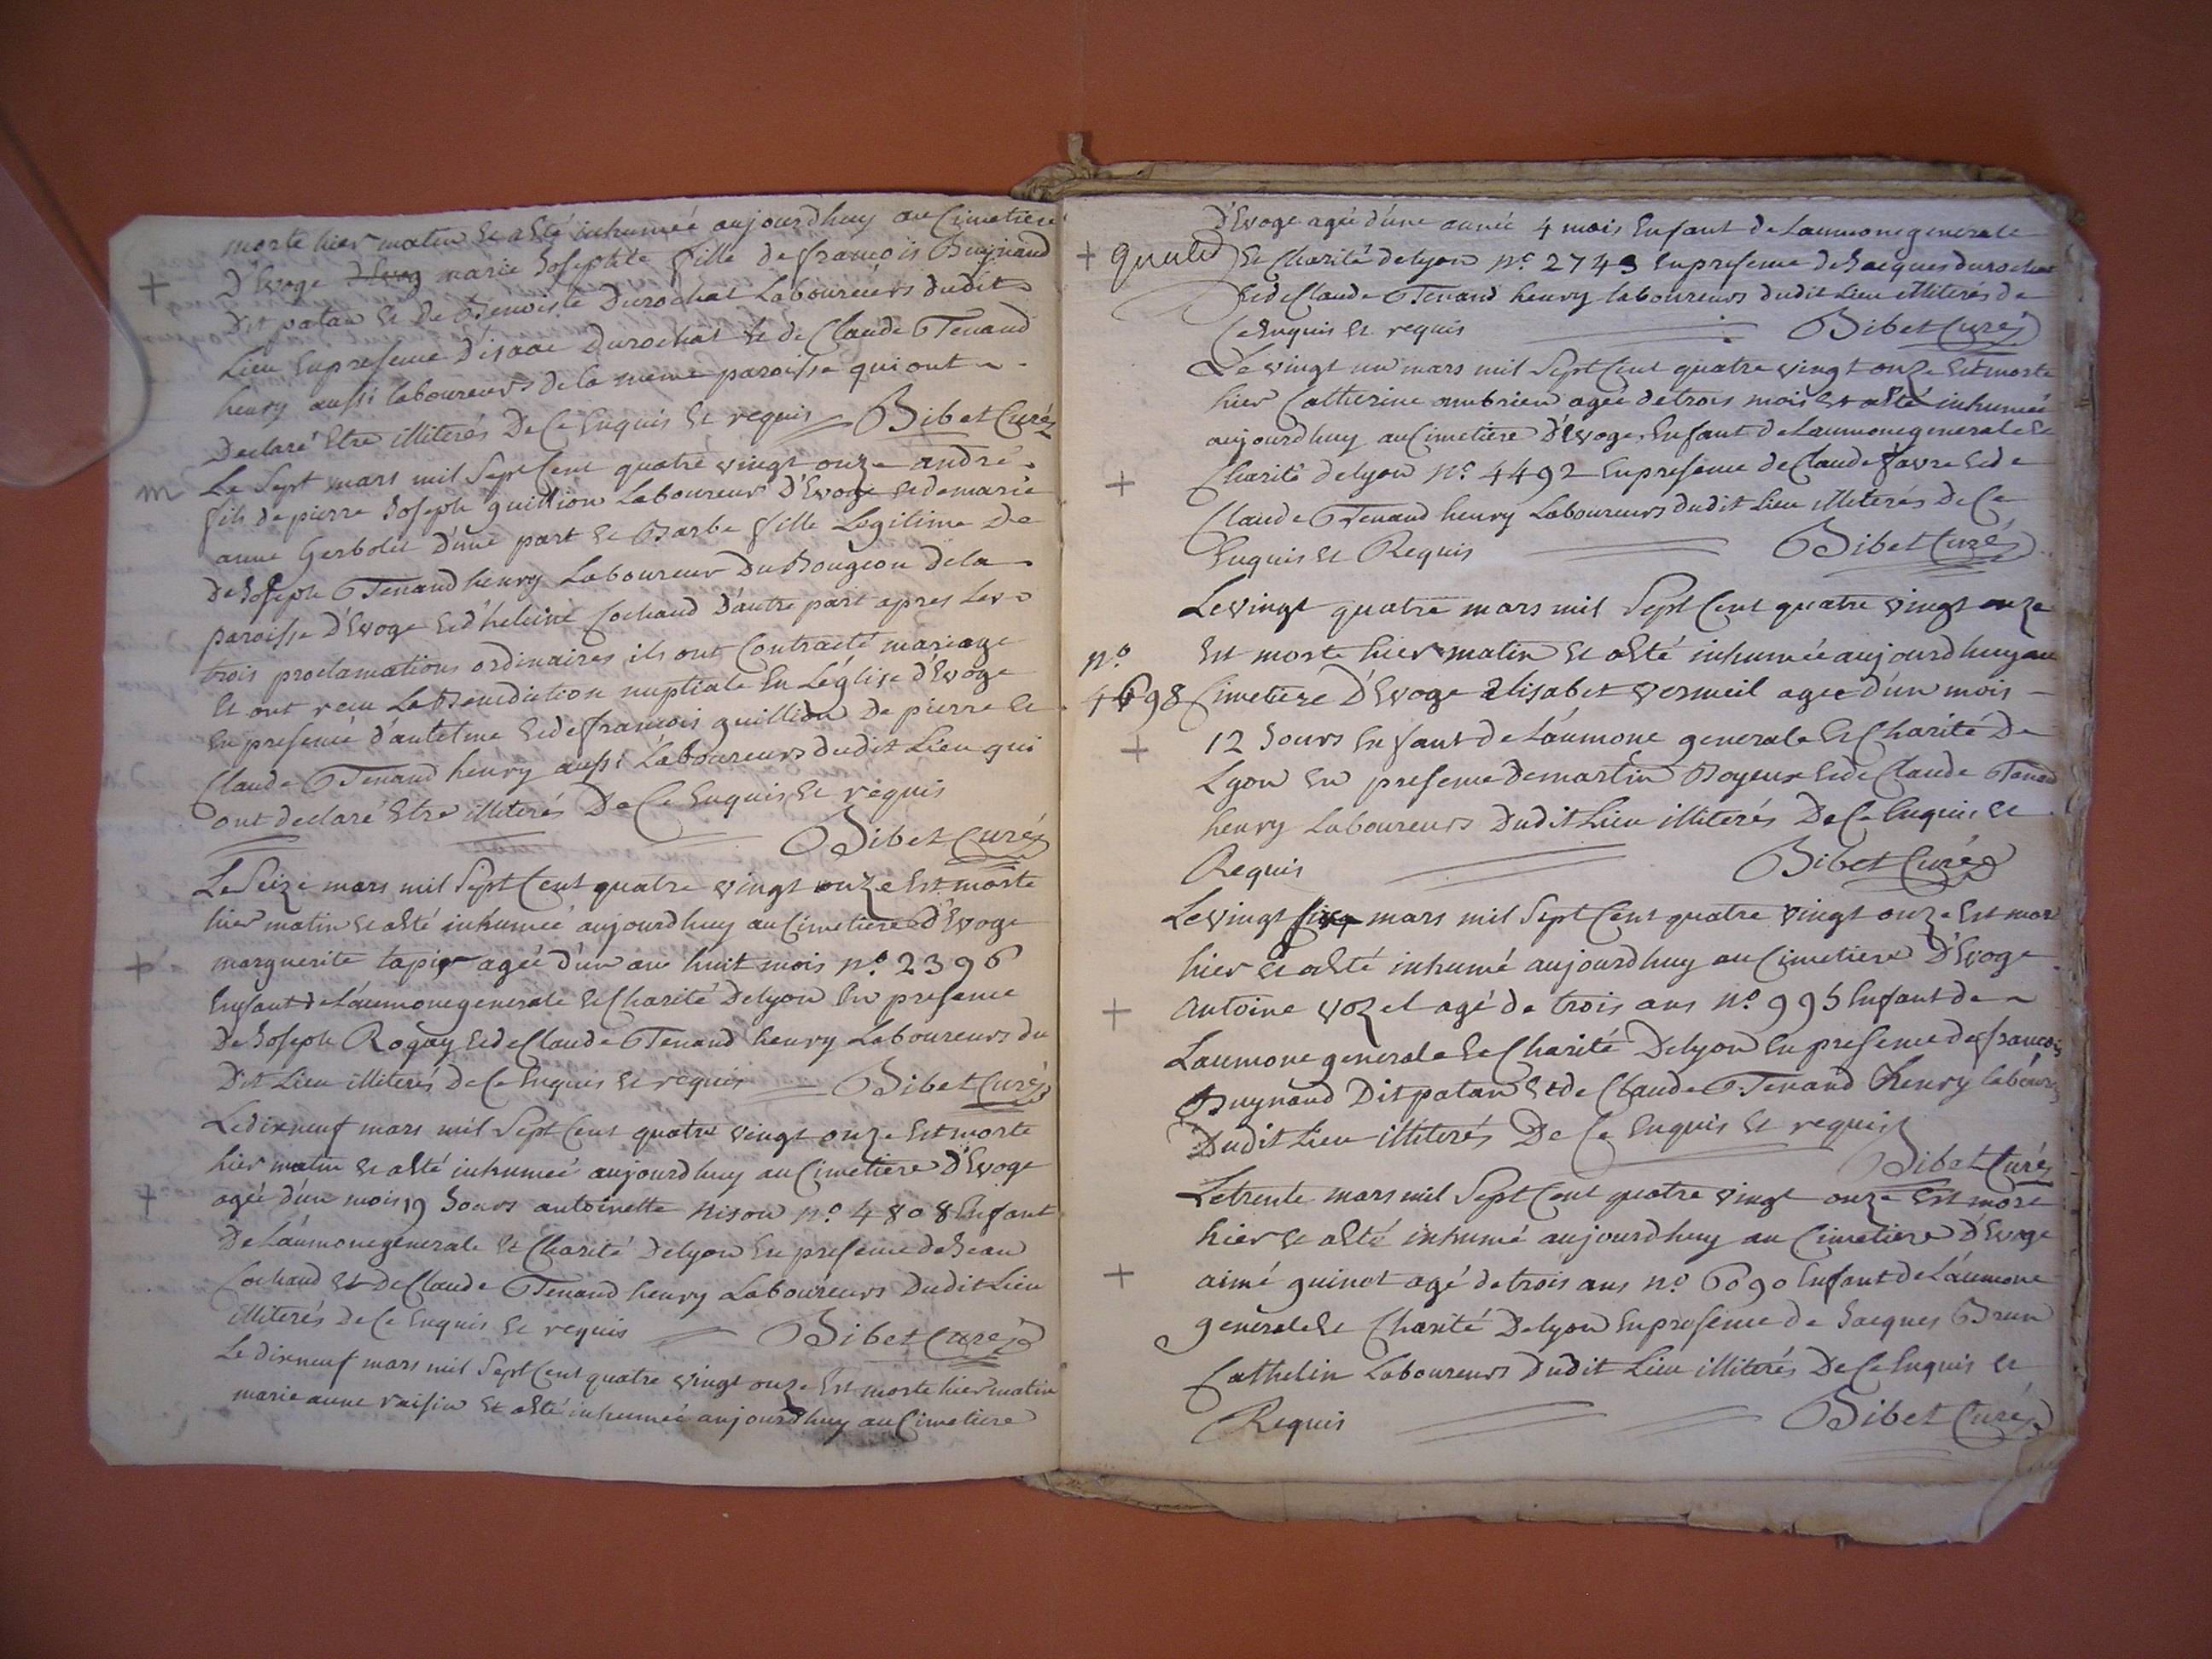 morte hier matin et a été inhumée aujourdhuy au Cimetiere
+ D'Evoge marie Josephte fille de françois Buynand
Dit patan et de Benoiste Durochat Laboureurs dudit
Lieu En presence D'isaac Durochat et de Claude Tenand
henry aussi laboureurs de la meme paroisse qui ont
Declaré Etre illiterés De Ce Enquis et requis Bibet Curé
m Le Sept mars mil Sept Cent quatre vingt onze andré
fils de pierre Joseph guillion Laboureur D'Evoge et de marie
anne Gerbolet D'une part et Barbe fille Legitime De
De Joseph Tenand henry Laboureur Du Bougeon de la
paroisse D'Evoge et d'heleine Cochaud D'autre part apres Les
trois proclamations ordinaires ils ont Contracté mariage
Et ont recu La Benediction nuptiale En L'église d'Evoge
En presence d'antelme et de francois guillion De pierre et
Claude Tenand henry aussi Laboureurs dudit Lieu qui
ont declaré Etre illiterés De Ce Enquis Et requis
Bibet Curé
Le Seize mars mil Sept Cent quatre vingt onze Est morte
hier matin et a été inhumée aujourdhuy au Cimetiere d'Evoge
+ marguerite tapis agée d'un an huit mois n.º 2396
Enfant de L'aumone generale et Charité De lyon En presence
De Joseph Rogay et de Claude Tenand henry Laboureurs du
Dit Lieu illiterés de Ce Enquis et requis Bibet Curé
Le dixneuf mars mil Sept Cent quatre vingt onze Est morte
hier matin et a été inhumée aujourdhuy au Cimetiere D'Evoge
+ agée d'un mois 19 Jours antoinette nison n.º 4808 Enfant
De L'aumone generale et Charité De lyon En presence de Jean
Cochaud et De Claude Tenand henry Laboureurs Dudit Lieu
illiterés de Ce Enquis et requis Bibet Curé
Le dixneuf mars mil Sept Cent quatre vingt onze Est morte hier matin
marie anne raisin et a été inhumée aujourdhuy au Cimetiere
D'Evoge agée d'une année 4 mois Enfant de Laumone generale
+ et Charité de lyon n.º 2743 En presence de Jacques durochat
et de Claude Tenand henry laboureurs dudit Lieu illiterés de
Ce Enquis et requis Bibet Curé
Le vingt un mars mil Sept Cent quatre vingt onze Est morte
hier Catherine aubrien agée de trois mois et a été inhumée
aujourdhuy au Cimetiere D'Evoge Enfant de Laumone generale et
+ Charité de lyon n.º 4492 En presence de Claude favre et de
Claude Tenand henry Laboureurs dudit Lieu illiterés De Ce
Enquis et Requis Bibet Curé
Le vingt quatre mars mil Sept Cent quatre vingt onze
n.º Est morte hier matin et a été inhumée aujourdhuy au
4698 Cimetiere D'Evoge Elisabet vermeil agée d'un mois
+ 12 Jours Enfant de L'aumone generale et Charité De
Lyon En presence De martin Boyeux et de Claude Tenand
henry Laboureurs Dudit Lieu illiterés De Ce Enquis et
Requis Bibet Curé
Le vingt mars mil Sept Cent quatre vingt onze Est mort
hier et a été inhumé aujourdhuy au Cimetiere D'Evoge
+ antoine vozel agé de trois ans n.º 995 Enfant de
Laumone generale et Charité De lyon En presence de francois
Buynand Dit patan et de Claude Tenand henry labour
Dudit Lieu illiterés De Ce Enquis et requis
Bibet Curé
Le trente mars mil Sept Cent quatre vingt onze Est mort
hier et a été inhumé aujourdhuy au Cimetiere D'Evoge
+ aimé guinot agé de trois ans n.º 6090 Enfant de L'aumone
generale et Charité De lyon En presence de Jacques Brun
Cathelin Laboureurs dudit Lieu illiterés De Ce Enquis et
Requis Bibet Curé